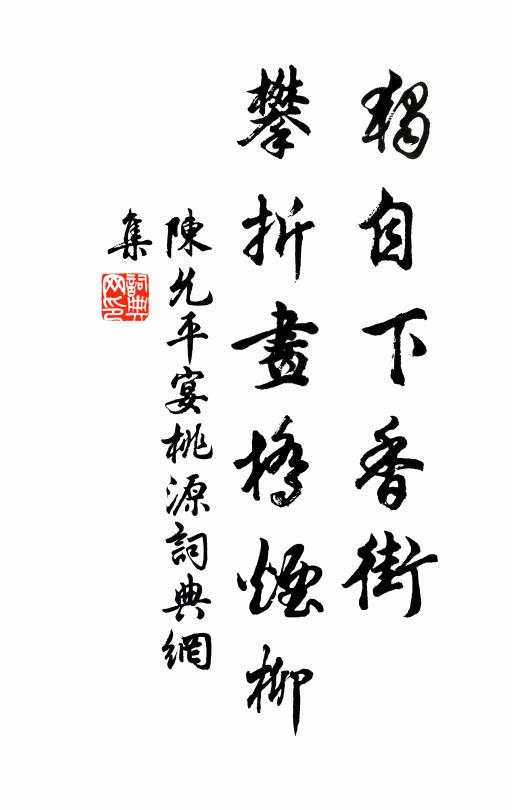 獨自下香街
攀折畫橋煙柳
陳允平宴桃源詞典網
集
詞典
网印